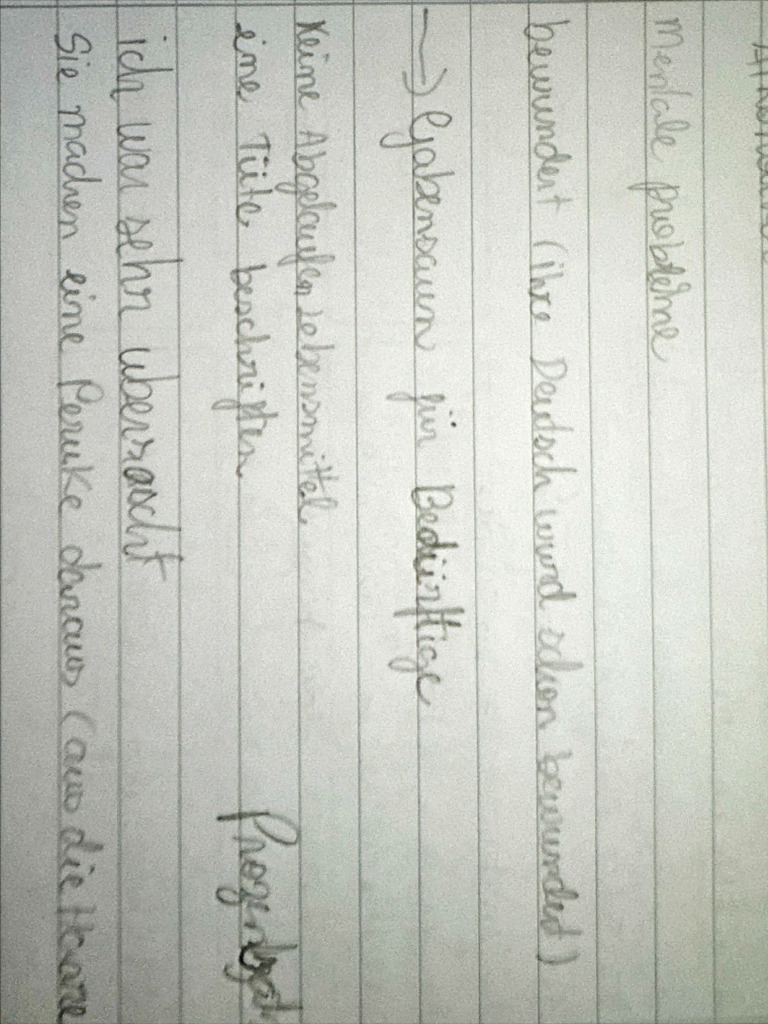 Mentale probleme
bewundert (ihre Deutsch wurd schon bewundert)
→ Gabenzaun für Bedürftige
Keine Abgelaufen Lebensmittel
eine Tüte beschriften
ich war sehr uberrascht
Sie machen eine Peruke daraus (aus die Haare